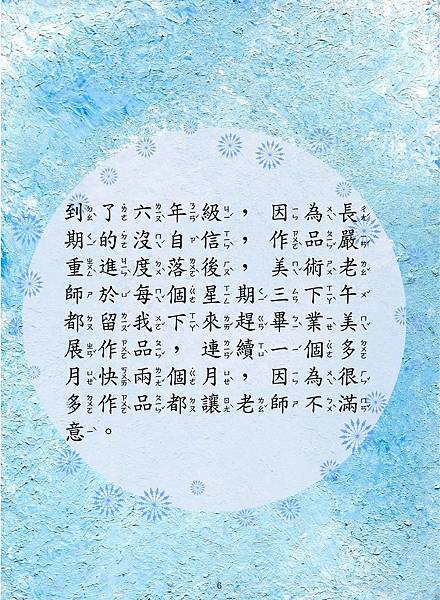 到了六年級，因為長
期的沒自信，作品嚴
重進度落後，美術老
師於每個星期三下午
都留我下來趕畢業美
展作品，連續一個多
月快兩個月，因為很
多作品都讓老師不滿
意。
6